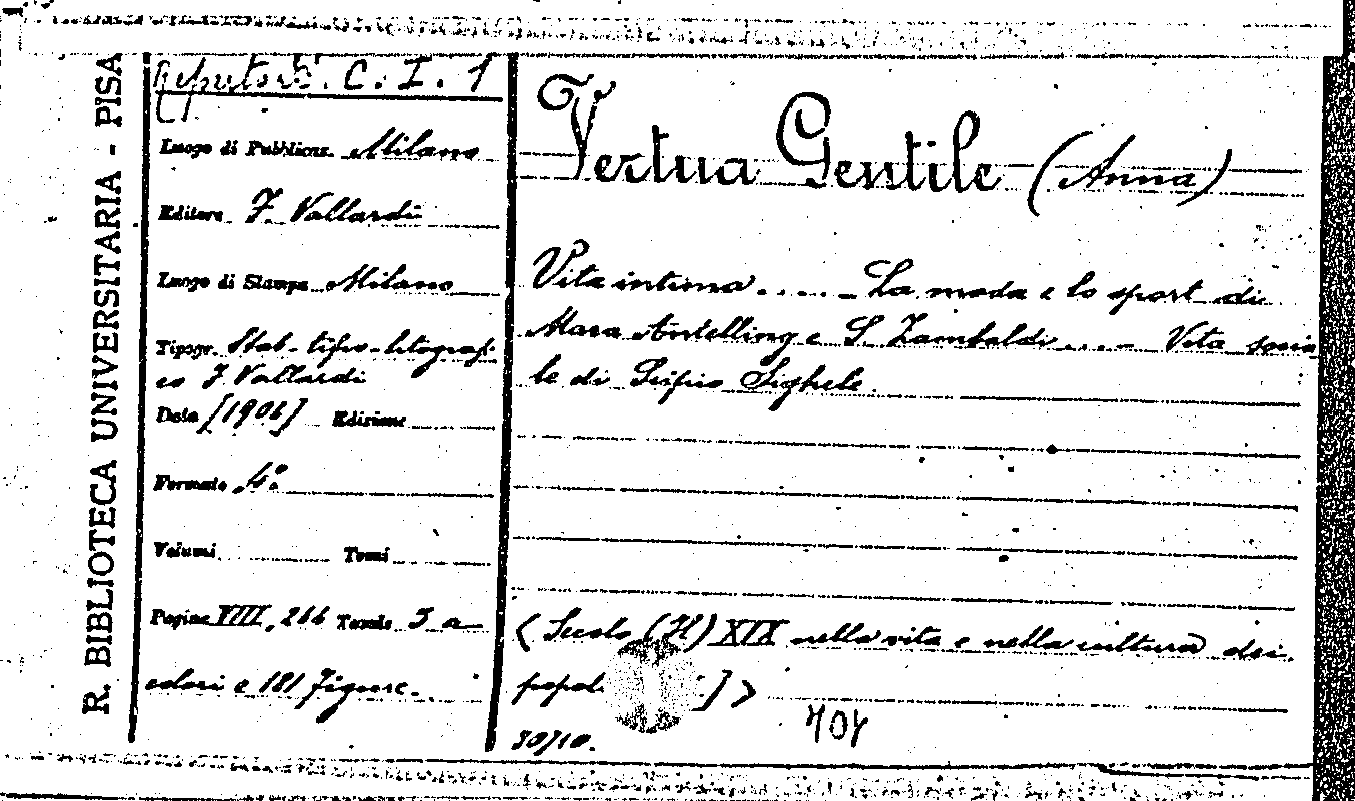 R. BIBLIOTECA UNIVERSITARIA - PISA
C. I. 1
Luogo di Pubblicaz. Milano
Editore F. Vallardi
Luogo di Stampa Milano
Tipogr. Stab. tipo-litografi-
co F. Vallardi
Data [1906] Edizione
Formato 4°
Volumi Tomi
Pagine VIII, 266 Tavole 5 a
colori e 181 figure.
Vertua Gentile (Anna)
Vita intima .... - La moda e lo sport di
Mara Antelling e S. Zambaldi .... - Vita socia
le di Scipio Sighele.
(Secolo (Il) XIX nella vita e nella cultura dei
popol ] >